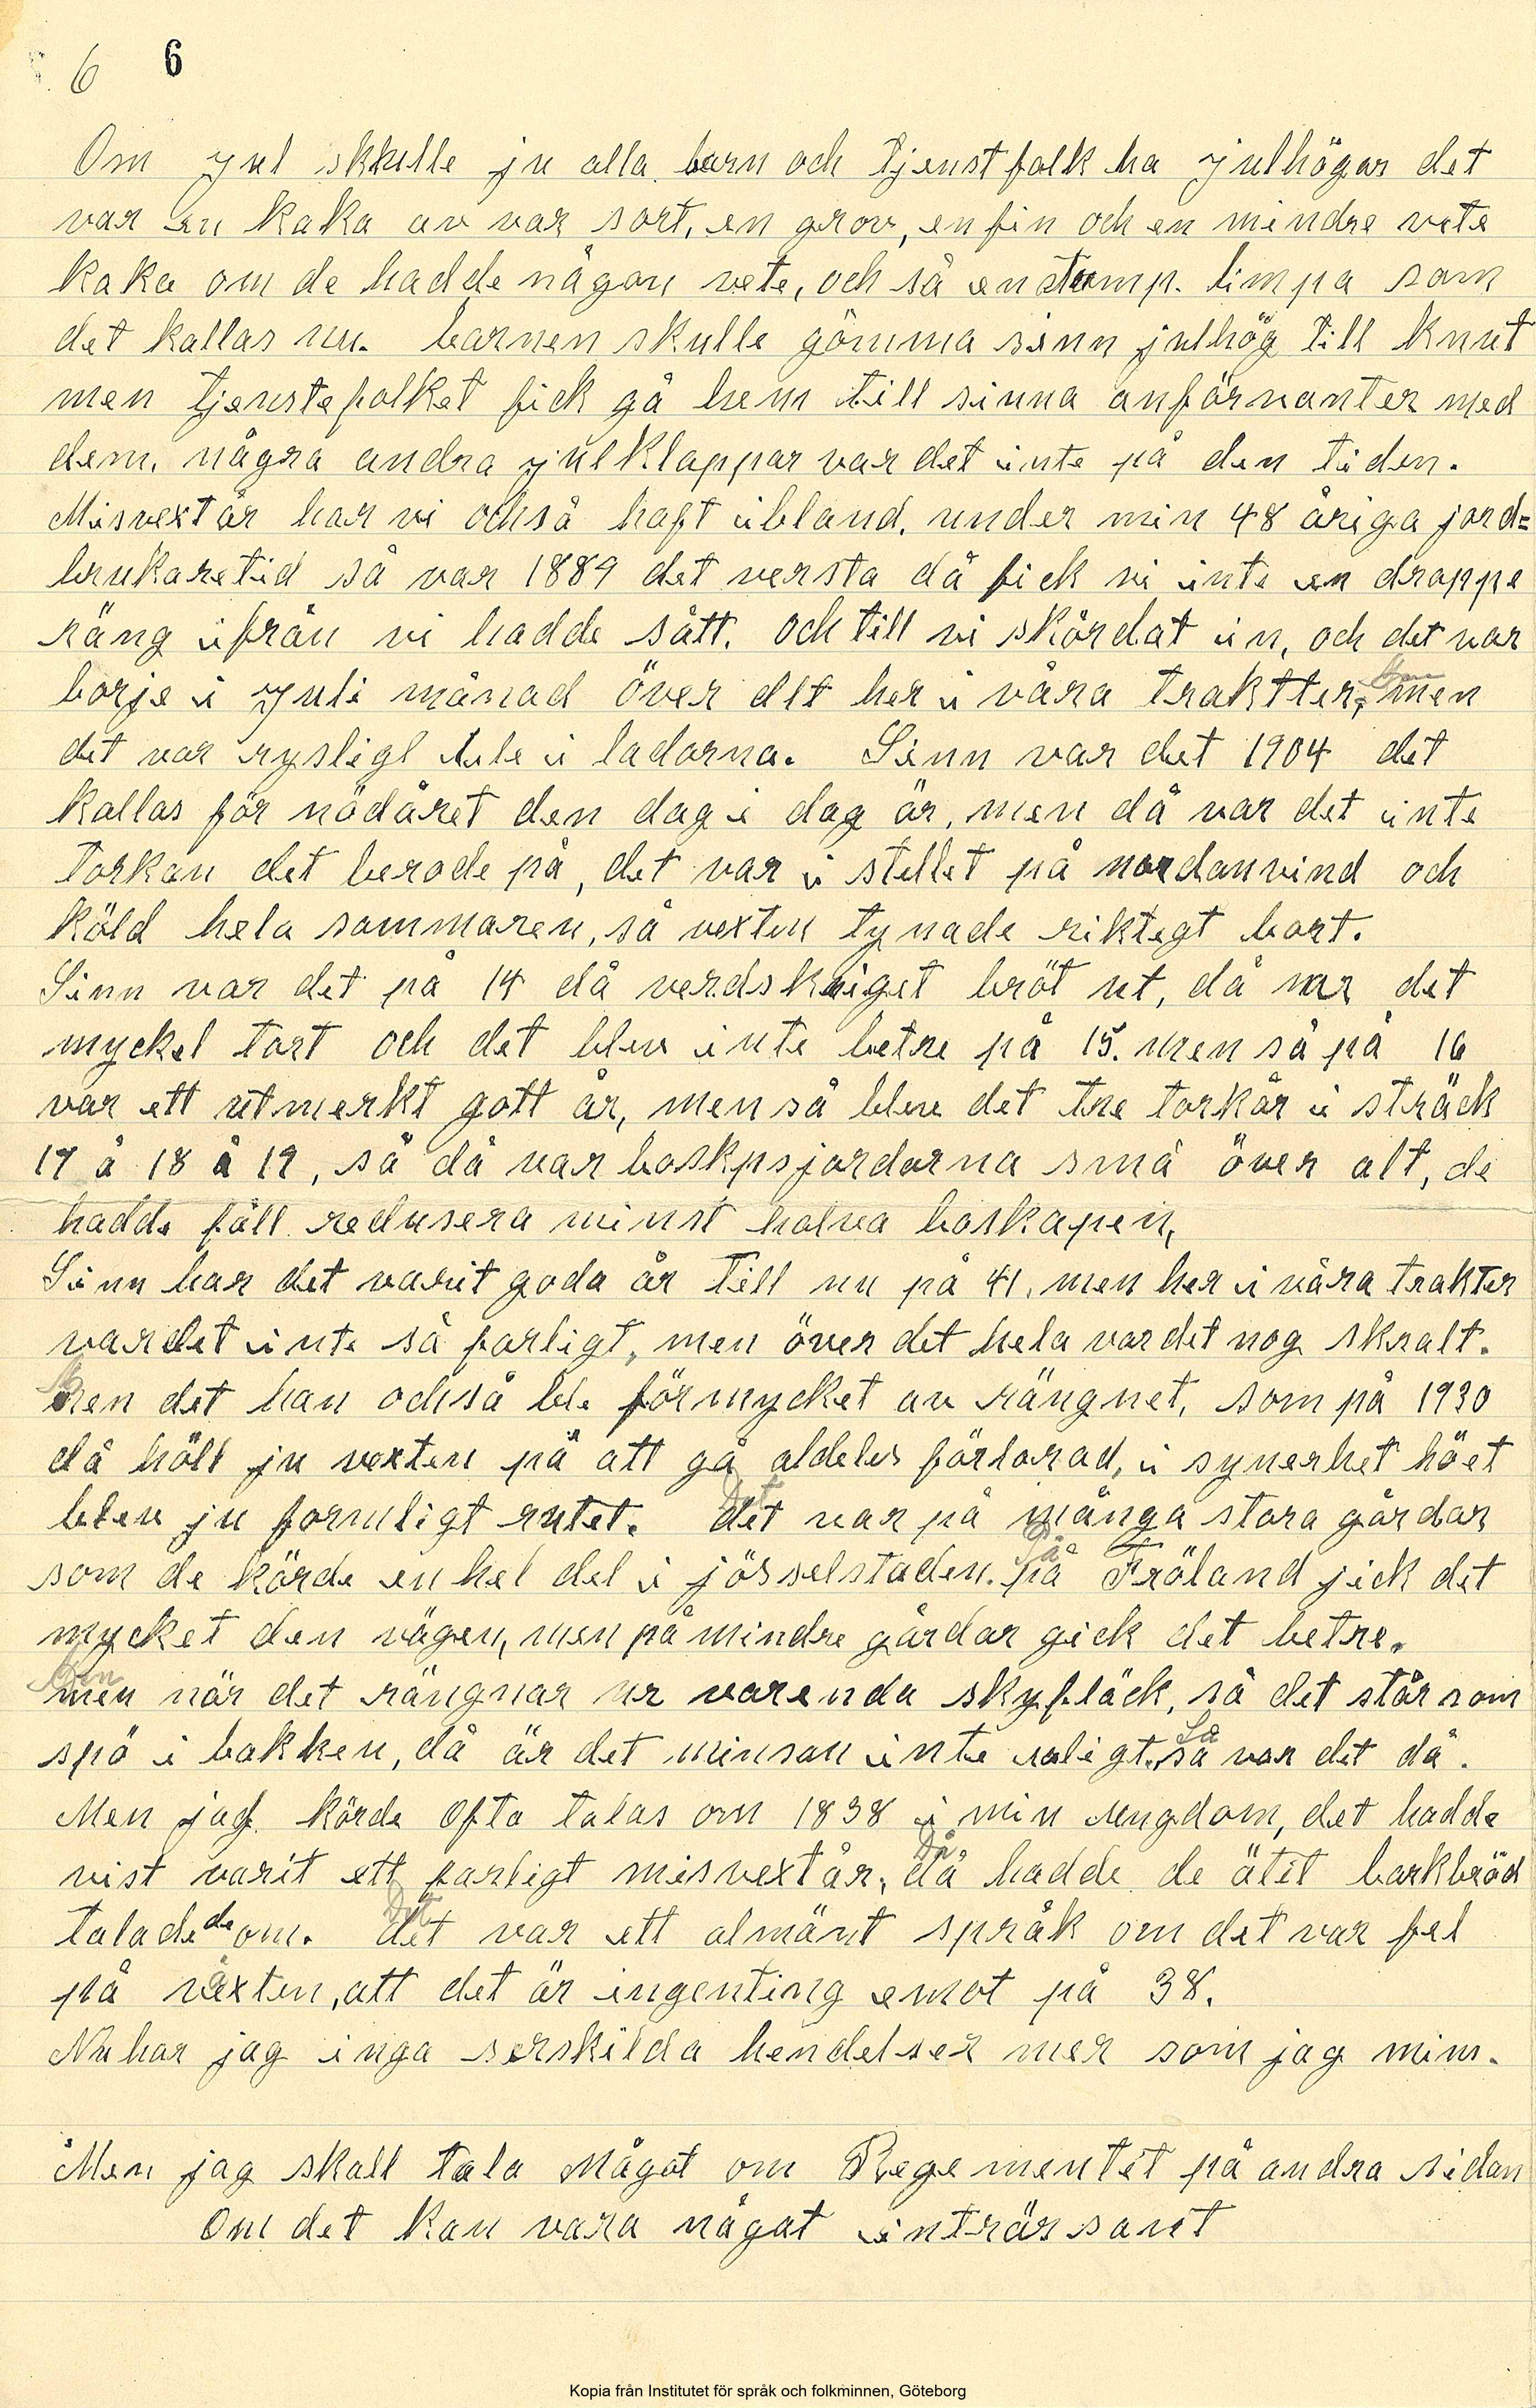 6 6
Om jul skulle ju alla barn och tjenstfolk ha julhögar det
var en kaka av var sort, en grov, en fin och en mindre vete
kaka om de hadde någon vete, och så en stump. limpa som
det kallas nu. barnen skulle gömma sinn julhög till Knut
men tjenstefolket fick gå hem till sinna anförvanter med
dem. några andra julklappar var det inte på den tiden.
Misvextår har vi också haft ibland. under min 48 åriga jord=
brukaretid så var 1889 det versta då fick vi inte en droppe
räng ifrån vi hadde sått. och till vi skördat in, och det var
borje i Juli månad över alt her i våra traktter, men
det var rysligt i ladorna. Sinn var det 1904 det
kallas för nödåret den dag i dag är, men då var det inte
torkan det berode på, det var i stellet på nordanvind och
köld hela sommaren, så vexten tynade riktegt bort.
Sinn var det på 14 då verdskriget bröt ut, då var det
myckel tort och det blev inte betre på 15. men så på 16
var ett utmerkt gott år, men så blev det tre torkår i sträck
17 å 18 å 19, så då var boskpsjordarna små över alt, de
hadde fåll redusera minst halva boskapen,
Sinn har det varit goda år till nu på 41, men her i våra trakter
var det inte så farligt, men över det hela var det nog skralt.
Men det kan också ble förmycket av rängnet, som på 1930
då höll ju vexten på att gå aldeles förlorad, i synerhet höet
blev ju foruligt rutet. Det var på många stora gårdar
som de körde en hel del i jösselstaden. På Fröland jick det
mycket den vägen, men på mindre gårdar gick det betre.
Men när det rängnar ur varenda skyfläck, så det står som
spö i bakken, då är det minsan inte roligt. Så var det då.
Men jag hörde ofta talas om 1838 i min ungdom, det hadde
vist varit ett farligt misvextår. Då hadde de ätit barkbröd
talade de om. Det var ett almänt språk om det var fel
på växten, att det är ingenting emot på 38.
Nu har jag inga serskilda hendelser mer som jag mins.
Men jag skall tala Något om Regementet på andra sidan
Om det kan vara något inträrsant
Kopia från Institutet för språk och folkminnen, Göteborg